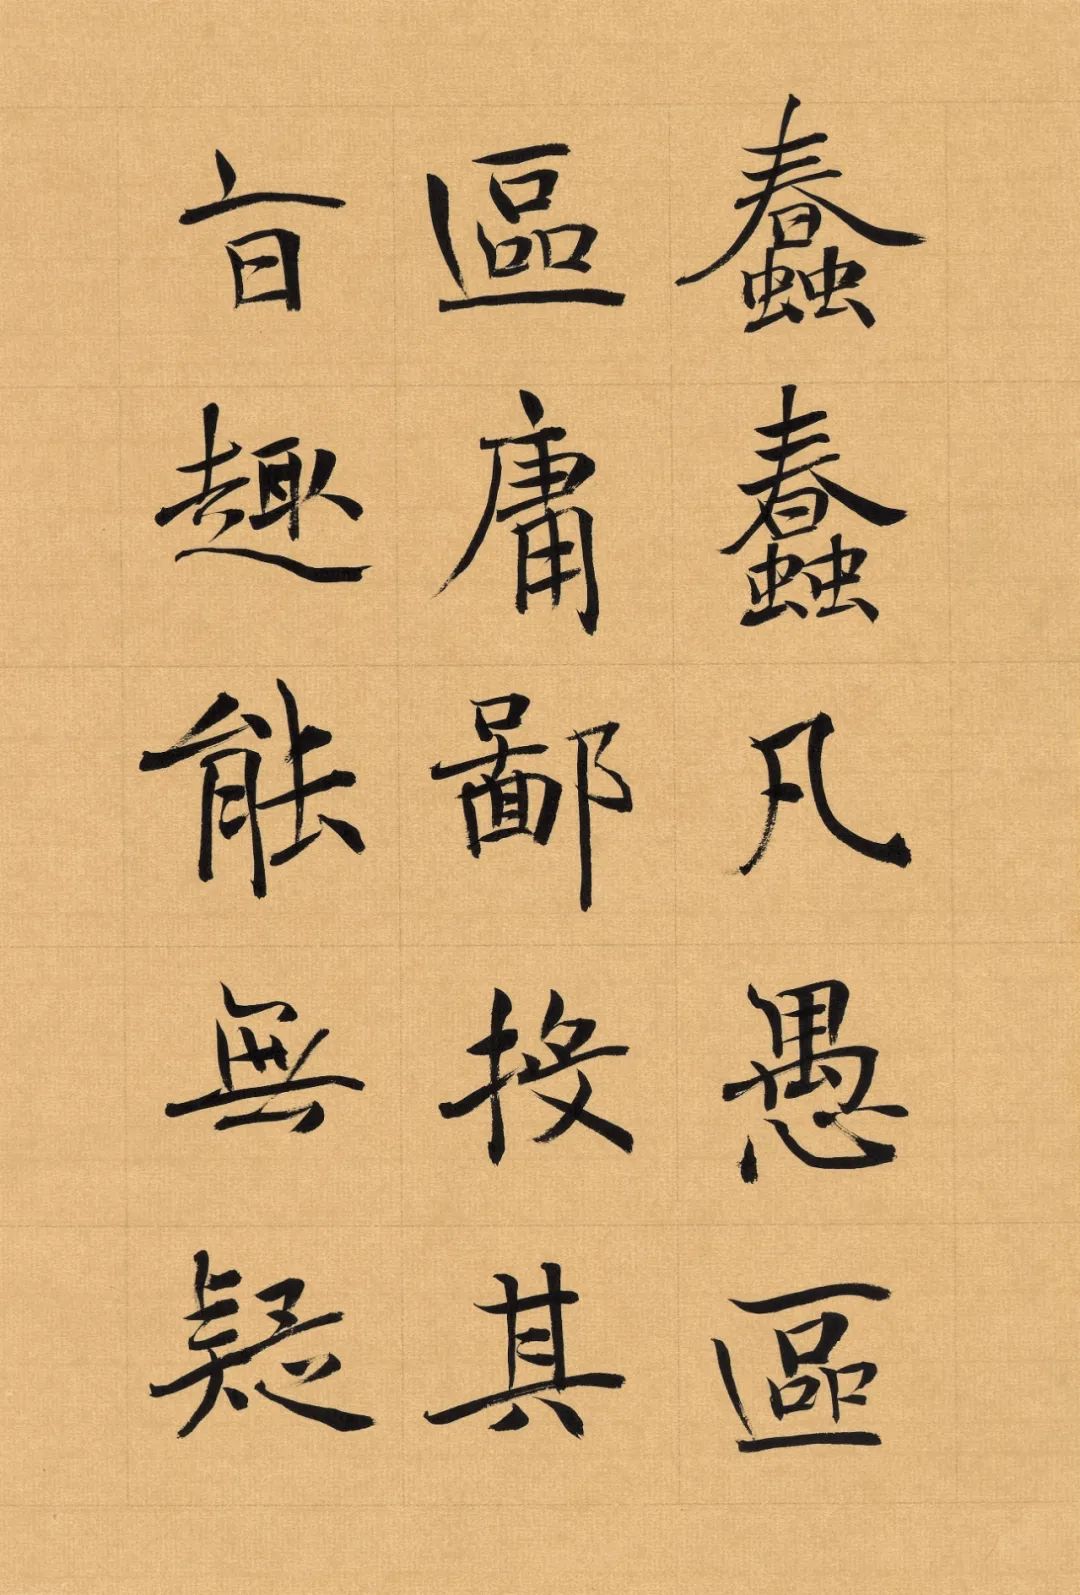 蠢蠢凡愚區
區庸鄙投其
旨趣能無疑